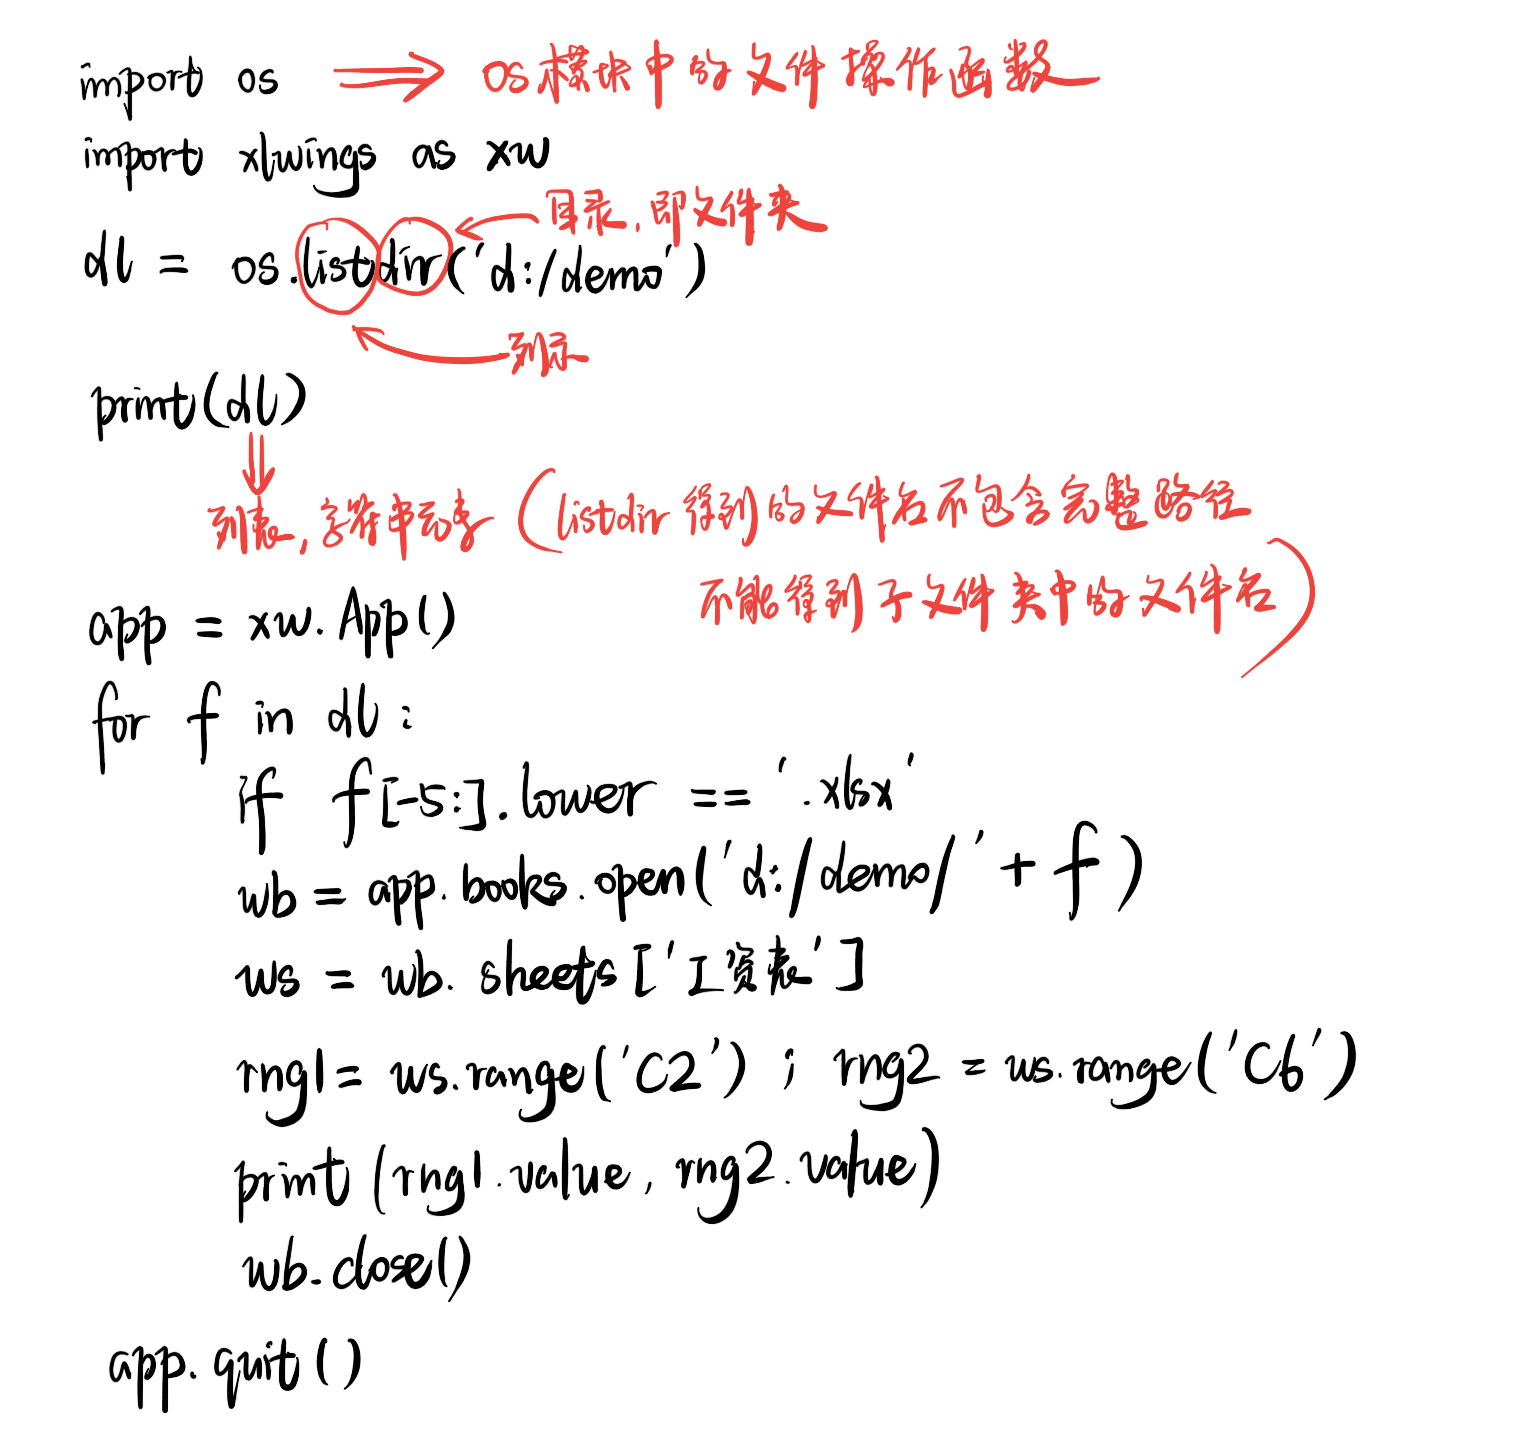 import os ⇒ os模块中的文件操作函数
import xlwings as xw
目录,即文件夹
dl = os.listdir('d:/demo')
列示
print(dl)
列表,字符串元素 (listdir 得到的文件名不包含完整路径
不能得到子文件夹中的文件名)
app = xw.App()
for f in dl:
if f[-5:].lower == '.xlsx'
wb = app.books.open('d:/demo/' + f)
ws = wb.sheets['工资表']
rng1 = ws.range('C2') ; rng2 = ws.range('C6')
print (rng1.value, rng2.value)
wb.close()
app.quit()